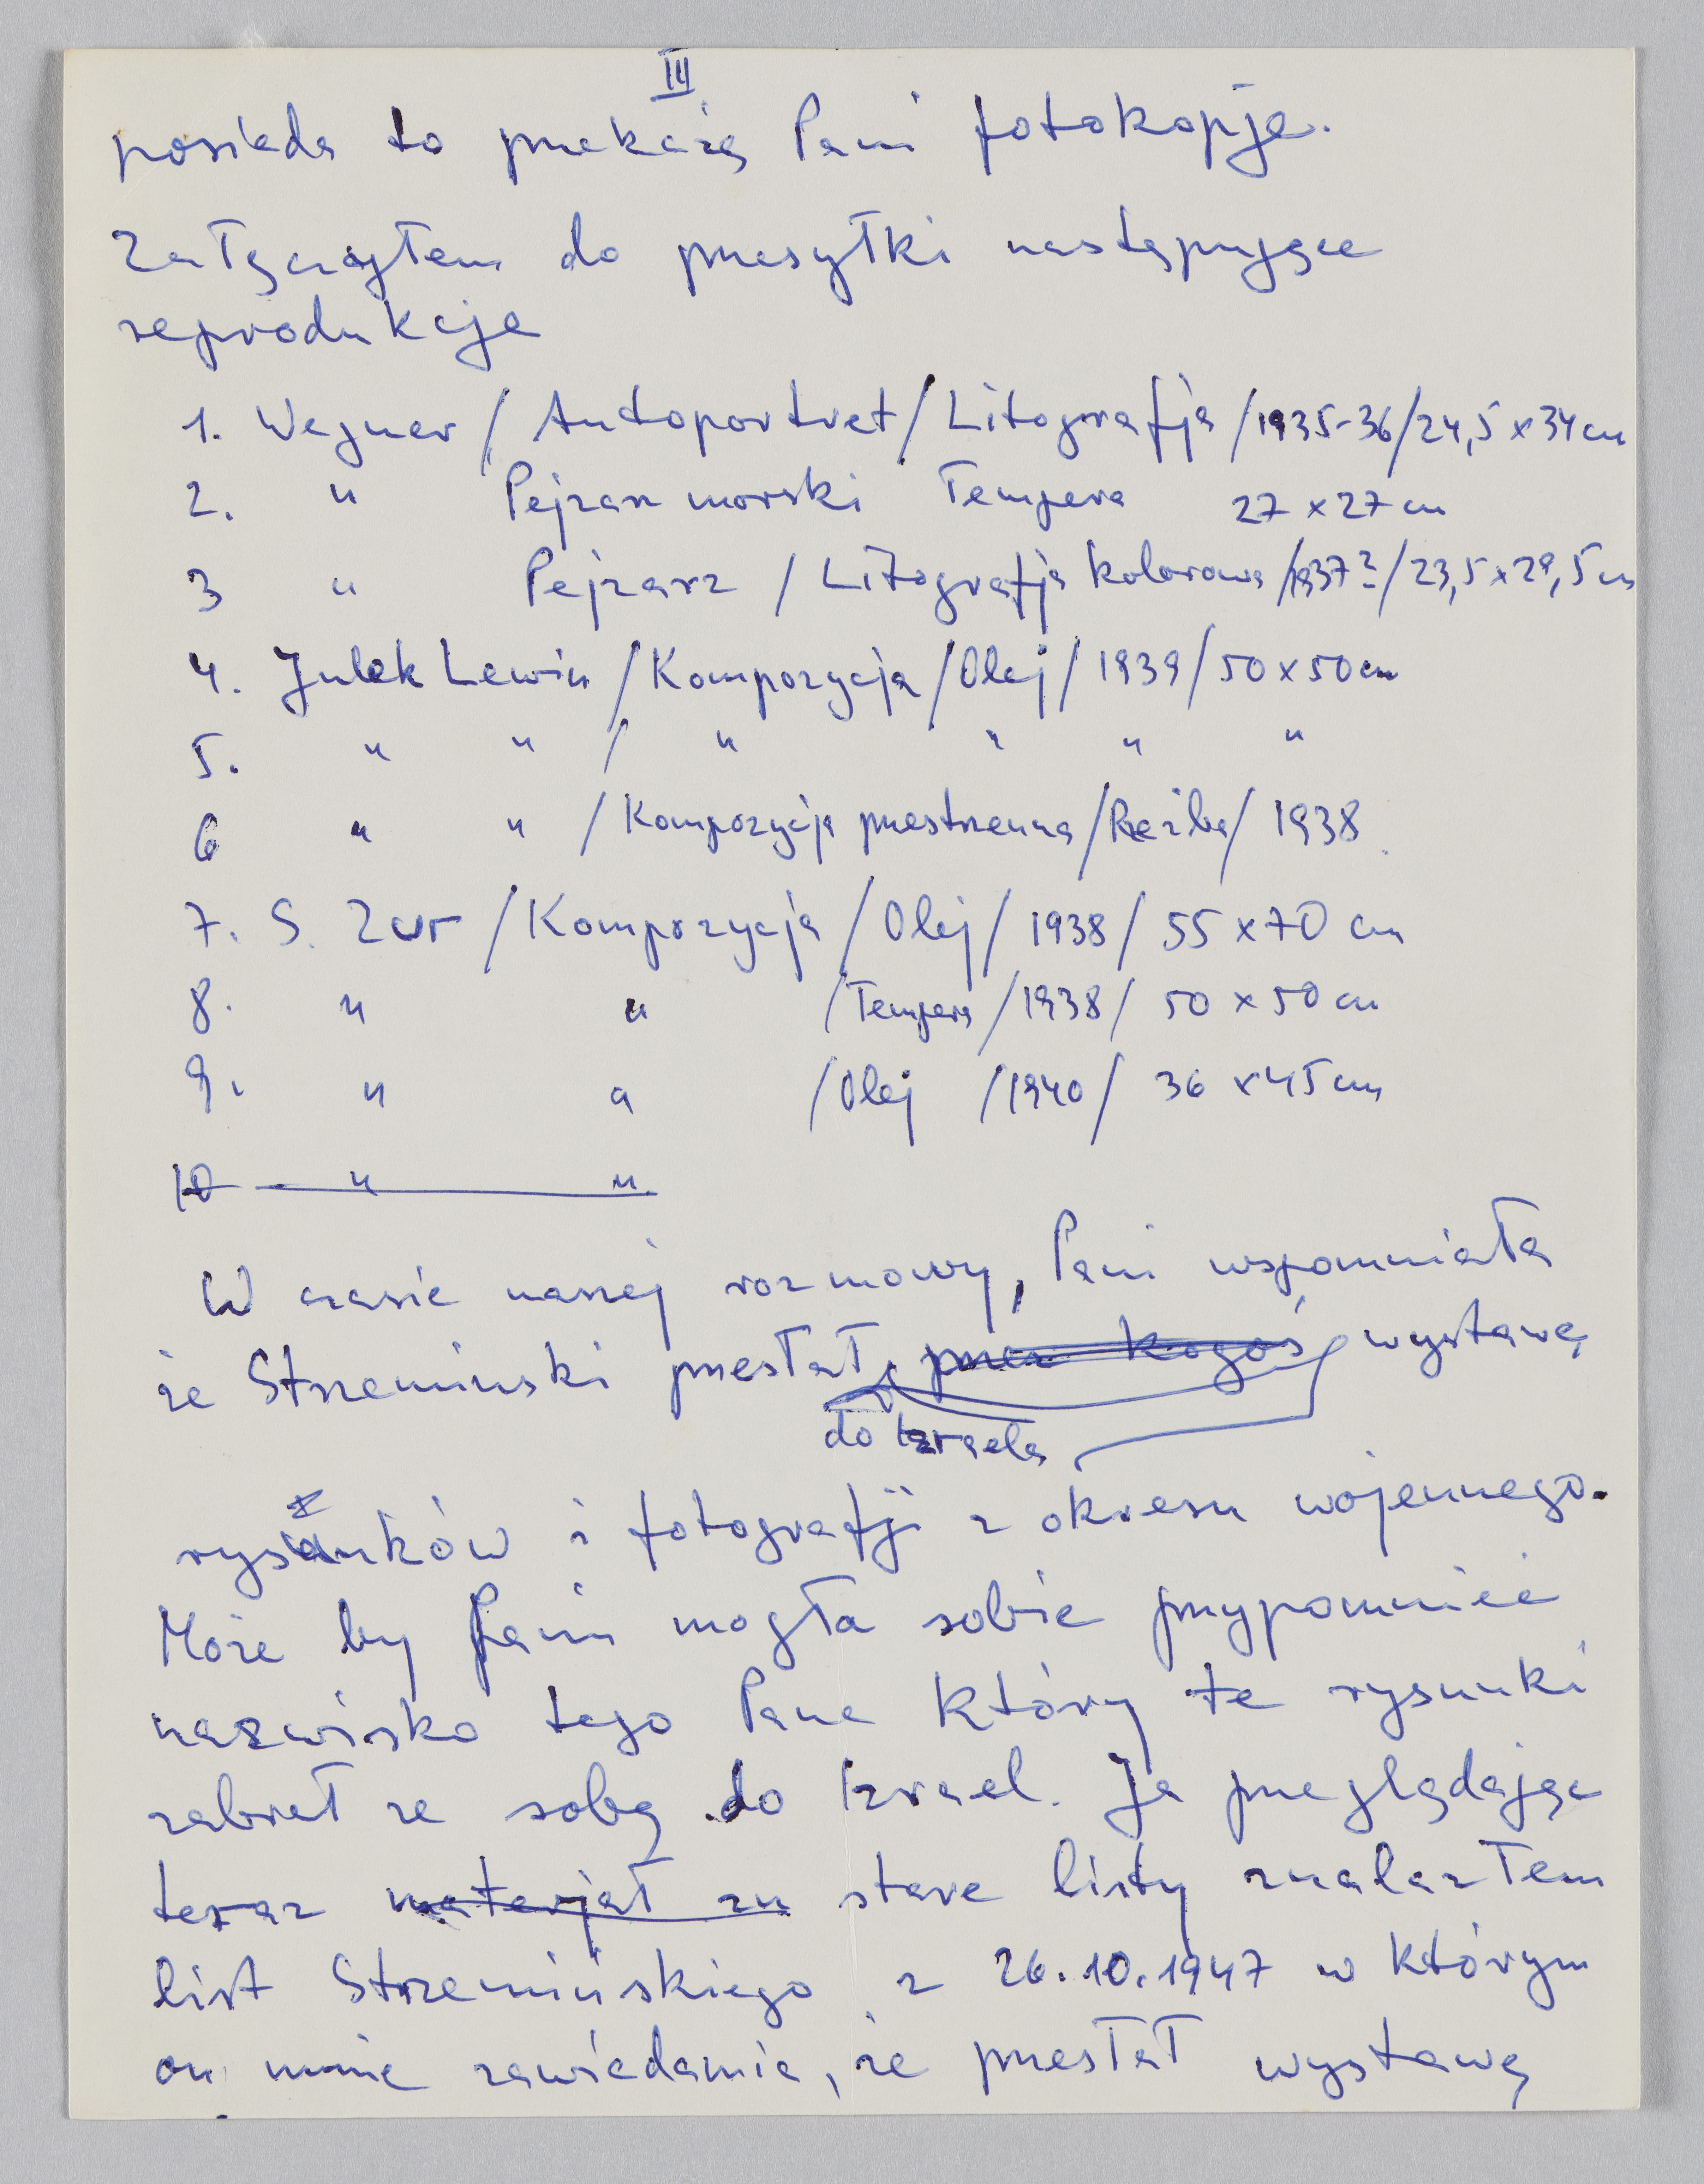 III
posiada to przekażą Pani fotokopje.
Załączyłem do przesyłki następujące
reprodukcje
1. Wegner / Autoportret / Litografja / 1935-36 / 24,5 x 34 cm
2. " Pejzarz morski Tempera 27 x 27 cm
3 " Pejzarz / Litografja kolorowa / 1937? / 23,5 x 29,5 cm
4. Julek Lewin / Kompozycja / Olej / 1939 / 50 x 50 cm
5. " " / " " " "
6 " " / Kompozycja przestrzenna / Rzeźba / 1938
7. S. Zur / Kompozycja / Olej / 1938 / 55 x 70 cm
8. " " / Tempera / 1938 / 50 x 50 cm
9. " " / Olej / 1940 / 36 x 45 cm
10 " "
W czasie naszej rozmowy, Pani wspomniała
że Strzemiński przesłał, przez kogoś, wystawę
do Izraela
rysunków i fotografji z okresu wojennego.
Może by Pani mogła sobie przypomnieć
nazwisko tego Pana który te rysunki
zabrał ze sobą do Izrael. Ja przeglądając
teraz materjał zn stare listy znalazłem
list Strzemińskiego z 26.10.1947 w którym
on mnie zawiadamia, że przesłał wystawę